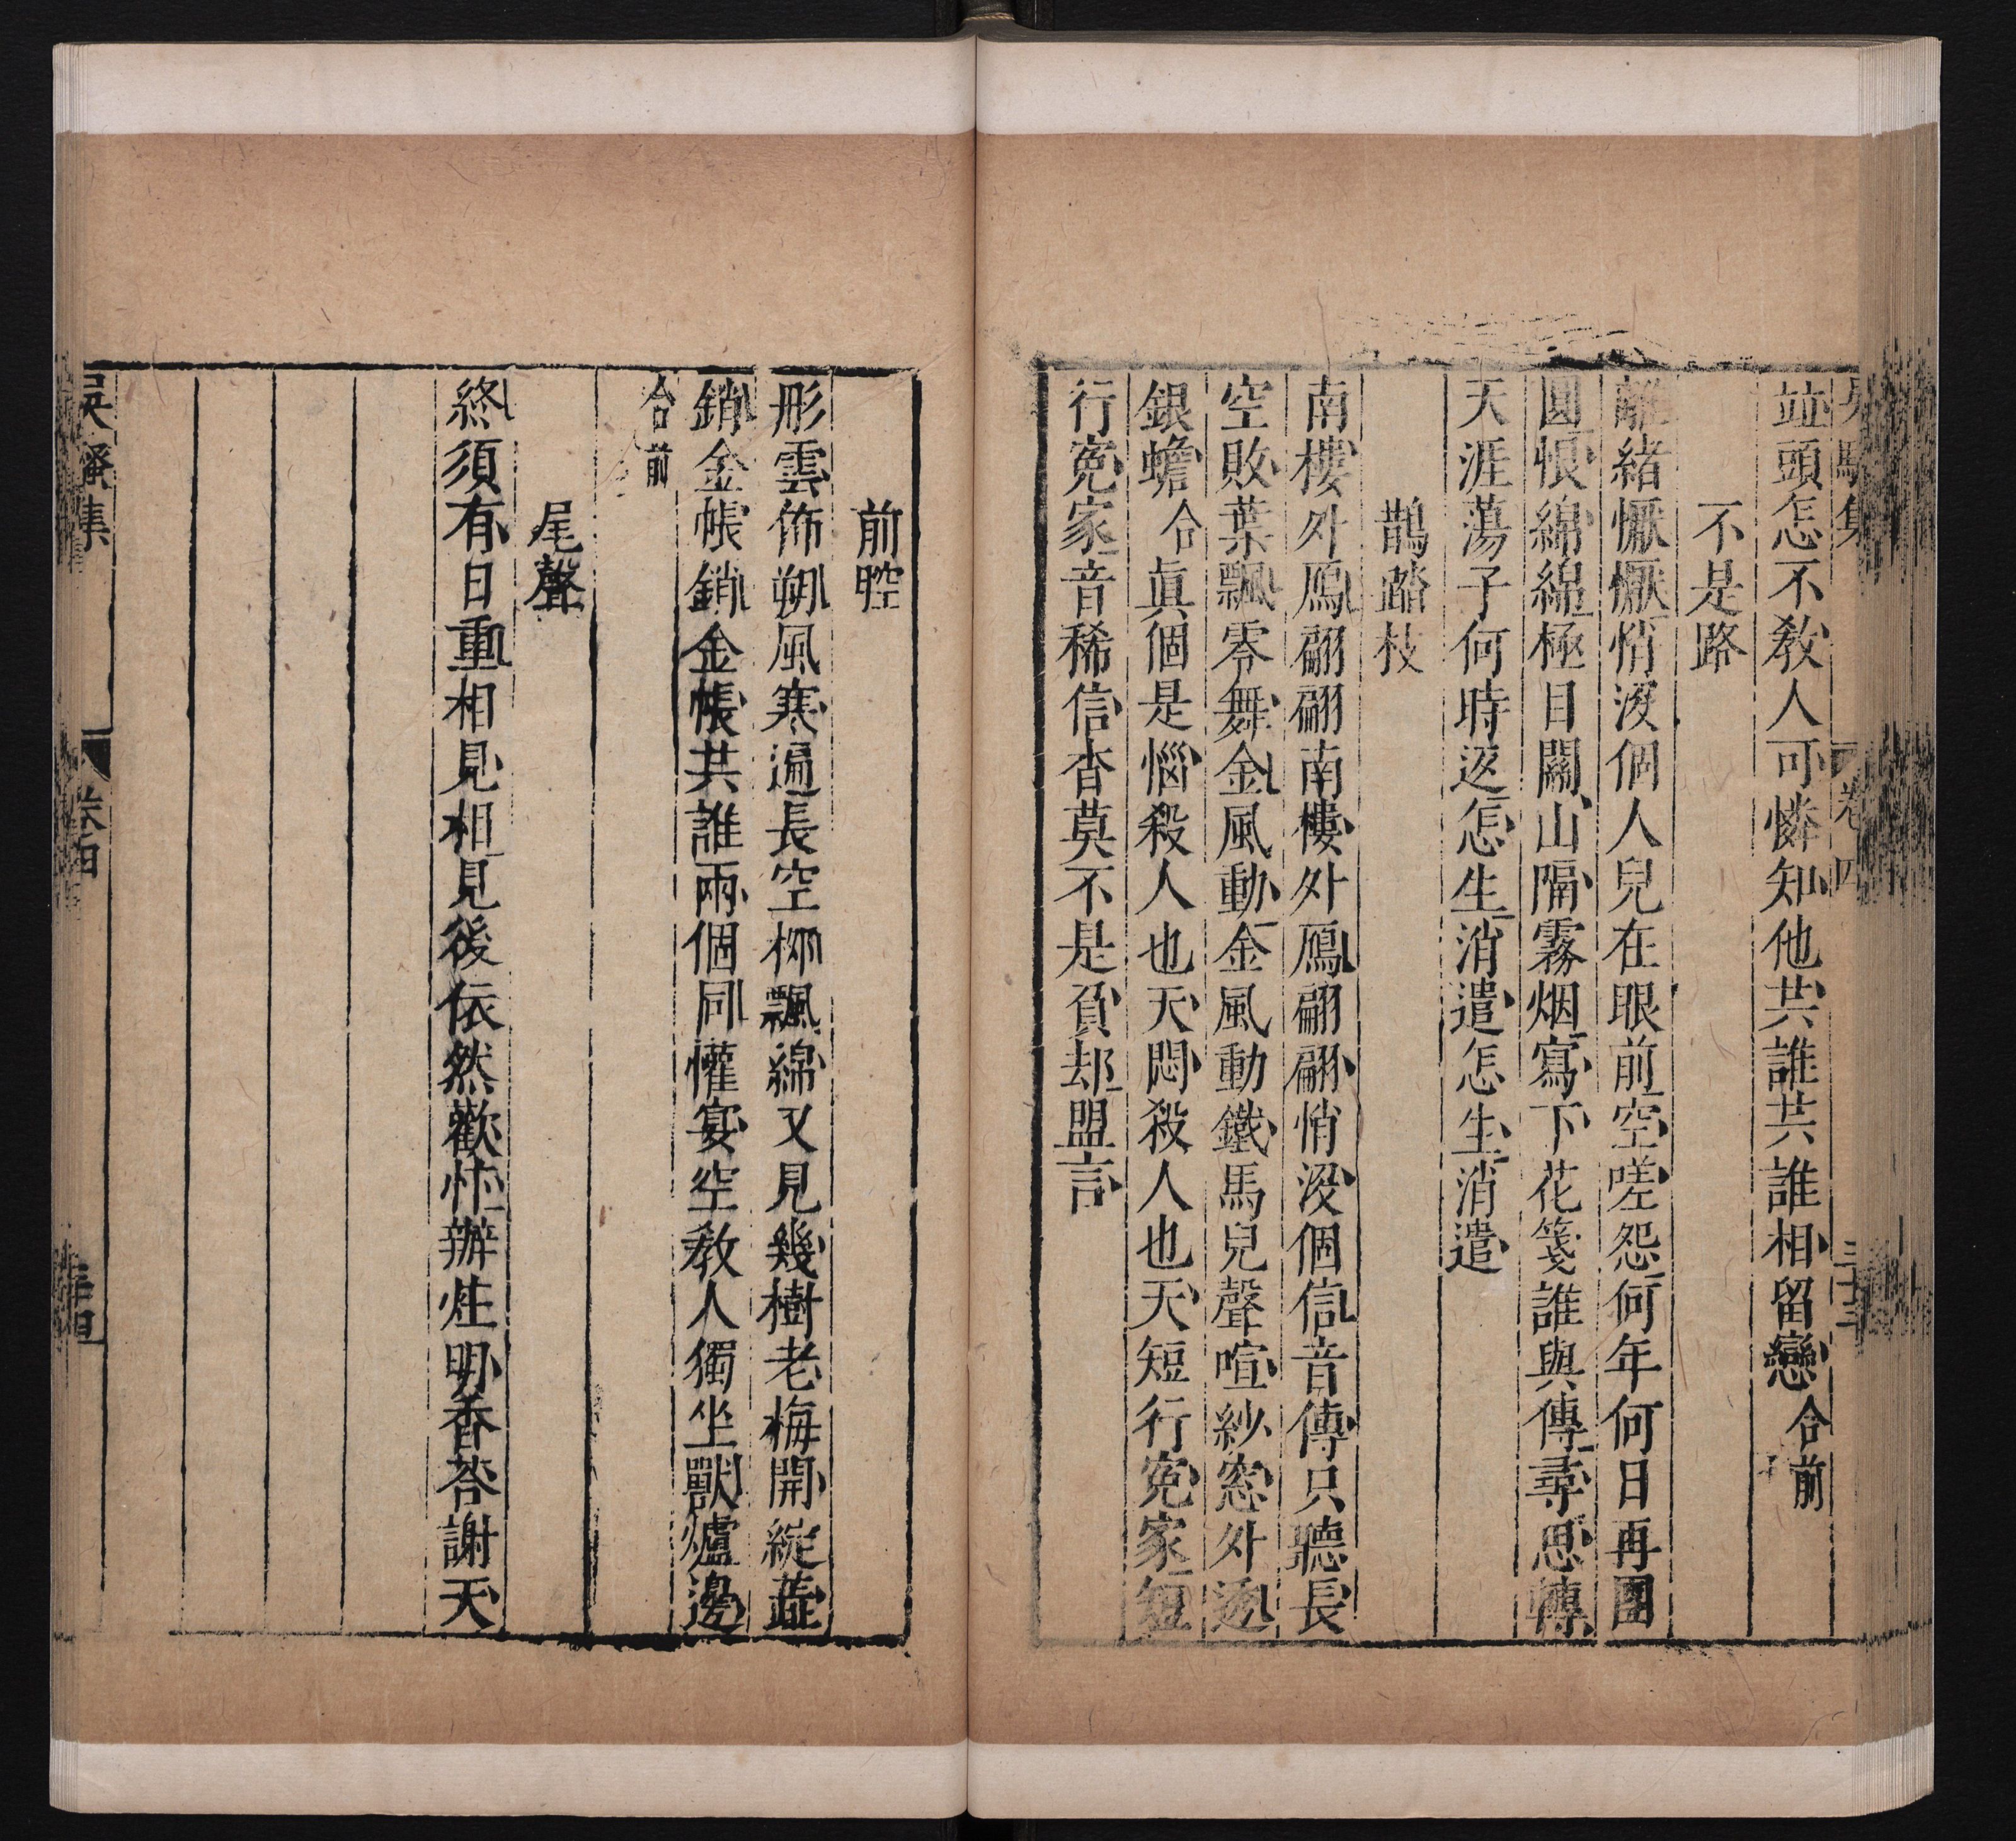 吳騷集 卷四 三十三
並頭怎不教人可憐知他共誰共誰相留戀合前
不是路
離緒懨懨悄沒個人兒在眼前空嗟怨何年何日再團
圓恨綿綿極目關山隔霧烟寫下花箋誰與傳尋思轉
天涯蕩子何時返怎生消遣怎生消遣
鵲踏枝
南樓外鴈翩翩南樓外鴈翩翩悄沒個信音傳只聽長
空敗葉飄零舞金風動金風動鐵馬兒聲喧紗窓外透
銀蟾合眞個是惱殺人也天悶殺人也天短行寃家短
行寃家音稀信杳莫不是負却盟言
前腔
彤雲佈朔風寒遍長空柳飄綿又見幾樹老梅開綻蘂
銷金帳銷金帳共誰兩個同懽宴空教人獨坐獸爐邊
合前
尾聲
終須有日重相見相見後依然歡忭辦炷明香荅謝天
吳騷集 卷四 三十四